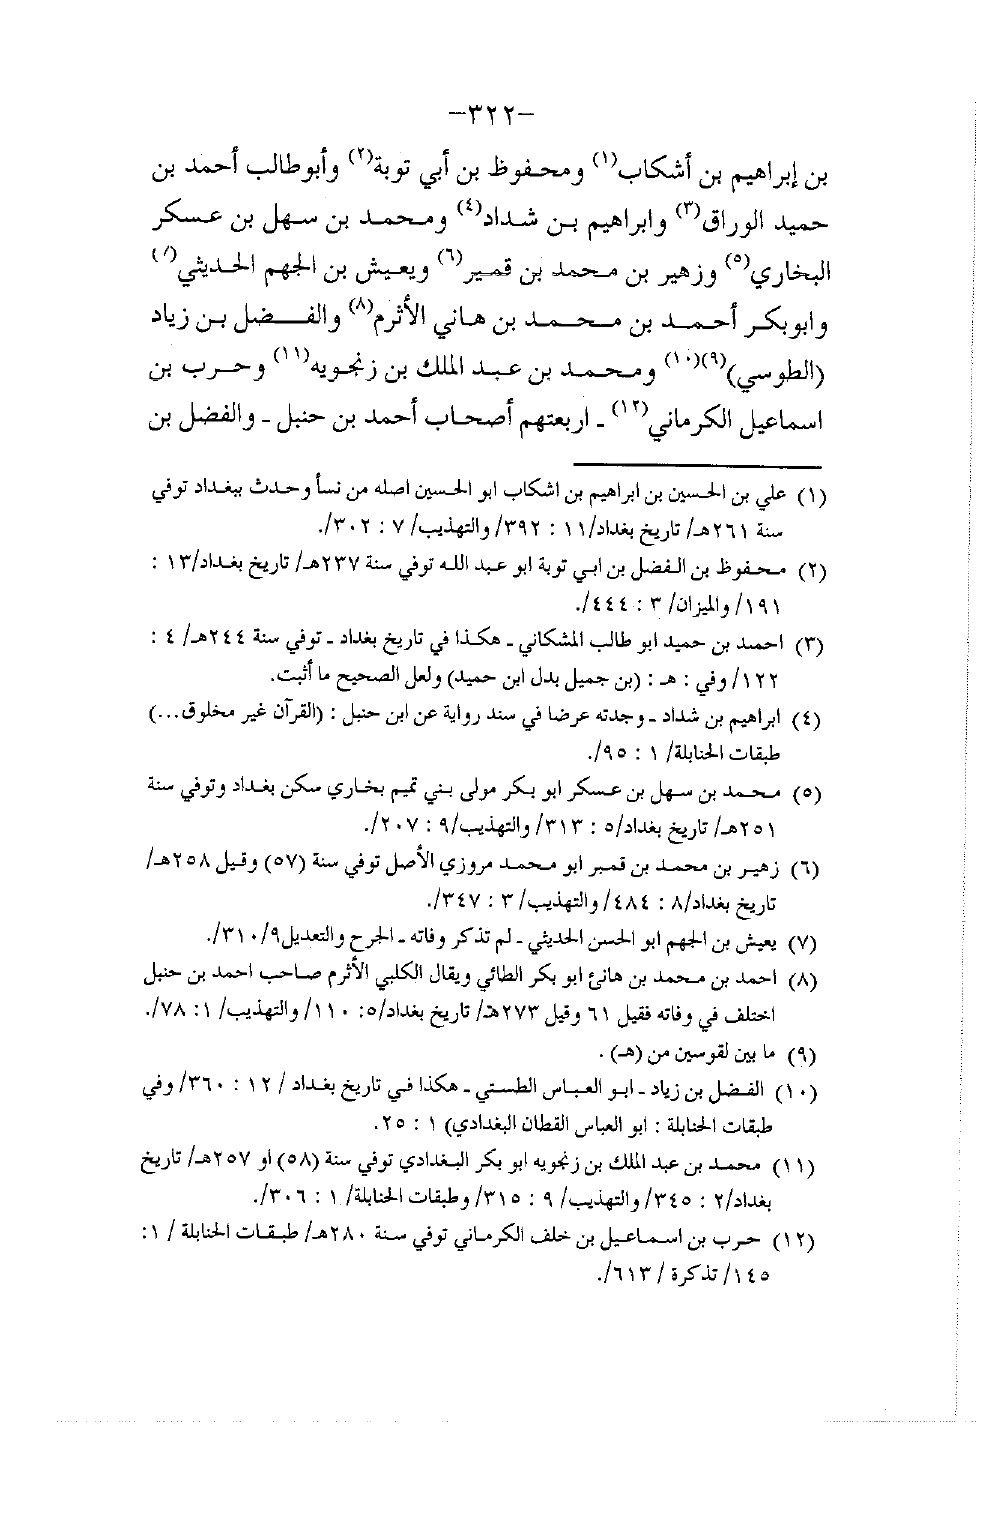 -٣٢٢-
بن إبراهيم بن أشكاب(١) ومحفوظ بن أبي توبة(٢) وأبوطالب أحمد بن
حميد الوراق(٣) وابراهيم بن شداد(٤) ومحمد بن سهل بن عسكر
البخاري(٥) وزهير بن محمد بن قمير(٦) ويعيش بن الجهم الحديثي(٧)
وابوبكر أحمد بن محمد بن هاني الأثرم(٨) والفضل بن زياد
(الطوسي)(٩)(١٠) ومحمد بن عبد الملك بن زنجويه(١١) وحرب بن
اسماعيل الكرماني(١٢) ـ اربعتهم أصحاب أحمد بن حنبل ـ والفضل بن
(١) علي بن الحسين بن ابراهيم بن اشكاب ابو الحسين اصله من نسأ وحدث ببغداد توفي
سنة ٢٦١هـ/ تاريخ بغداد/١١ : ٣٩٢/ والتهذيب/ ٧ : ٣٠٢/.
(٢) محفوظ بن الفضل بن ابي توبة ابو عبد الله توفي سنة ٢٣٧هـ/ تاريخ بغداد/١٣ :
١٩١/ والميزان/ ٣ : ٤٤٤/.
(٣) احمد بن حميد ابو طالب المشكاني ـ هكذا في تاريخ بغداد ـ توفي سنة ٢٤٤هـ/ ٤ :
١٢٢/ وفي : هـ : (بن جميل بدل ابن حميد) ولعل الصحيح ما أثبت.
(٤) ابراهيم بن شداد ـ وجدته عرضا في سند رواية عن ابن حنبل : (القرآن غير مخلوق...)
طبقات الحنابلة/ ١ : ٩٥/.
(٥) محمد بن سهل بن عسكر ابو بكر مولى بني تميم بخاري سكن بغداد وتوفي سنة
٢٥١هـ/ تاريخ بغداد/٥ : ٣١٣/ والتهذيب/٩ : ٢٠٧/.
(٦) زهير بن محمد بن قمير ابو محمد مروزي الأصل توفي سنة (٥٧) وقيل ٢٥٨هـ/
تاريخ بغداد/٨ : ٤٨٤/ والتهذيب/ ٣ : ٣٤٧/.
(٧) يعيش بن الجهم ابو الحسن الحديثي ـ لم تذكر وفاته ـ الجرح والتعديل٣١٠/٩/.
(٨) احمد بن محمد بن هانئ ابو بكر الطائي ويقال الكلبي الأثرم صاحب احمد بن حنبل
اختلف في وفاته فقيل ٦١ وقيل ٢٧٣هـ/ تاريخ بغداد/٥: ١١٠/ والتهذيب/ ١: ٧٨/.
(٩) ما بين لقوسين من (هـ) .
(١٠) الفضل بن زياد ـ ابو العباس الطستي ـ هكذا في تاريخ بغداد / ١٢ : ٣٦٠/ وفي
طبقات الحنابلة : ابو العباس القطان البغدادي) ١ : ٢٥.
(١١) محمد بن عبد الملك بن زنجويه ابو بكر البغدادي توفي سنة (٥٨) او ٢٥٧هـ/ تاريخ
بغداد/٢ : ٣٤٥/ والتهذيب/ ٩ : ٣١٥/ وطبقات الحنابلة/ ١ : ٣٠٦/.
(١٢) حرب بن اسماعيل بن خلف الكرماني توفي سنة ٢٨٠هـ/ طبقات الحنابلة / ١:
١٤٥/ تذكرة / ٦١٣/.